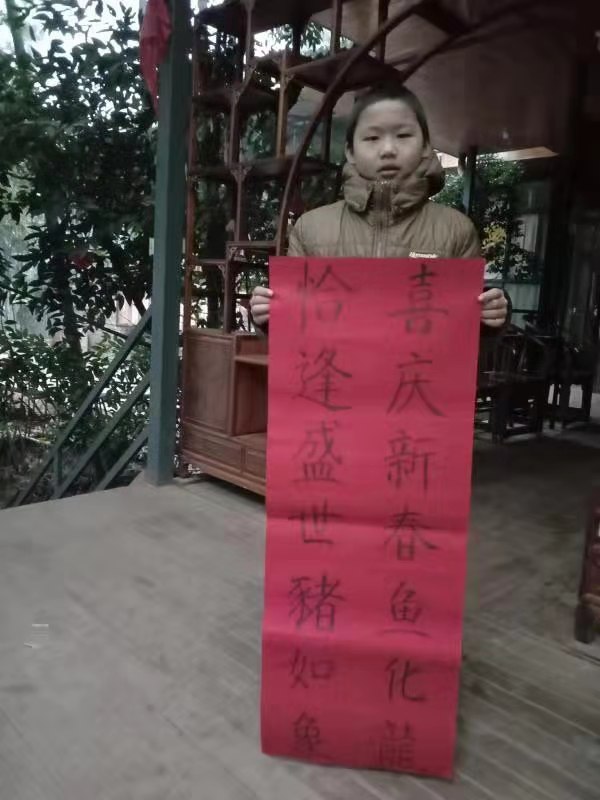 喜庆新春鱼化龍
恰逢盛世豬如象